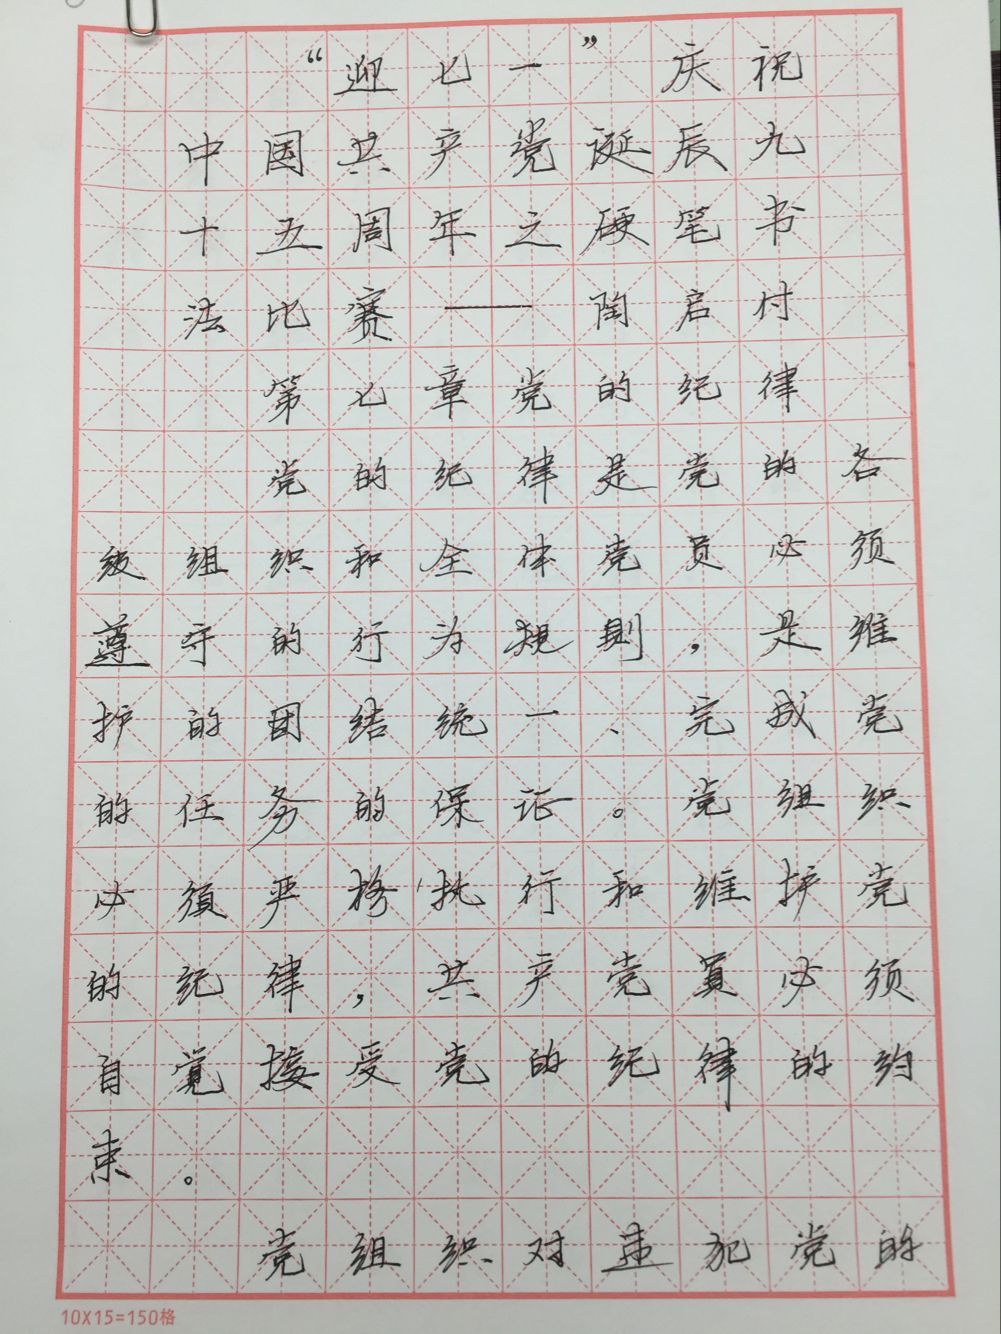 “迎七一”庆祝
中国共产党诞辰九
十五周年之硬笔书
法比赛——陶启付
第七章党的纪律
党的纪律是党的各
级组织和全体党员必须
遵守的行为规则，是维
护的团结统一、完成党
的任务的保证。党组织
必须严格执行和维护党
的纪律，共产党员必须
自觉接受党的纪律的约
束。
党组织对违犯党的
10X15=150格